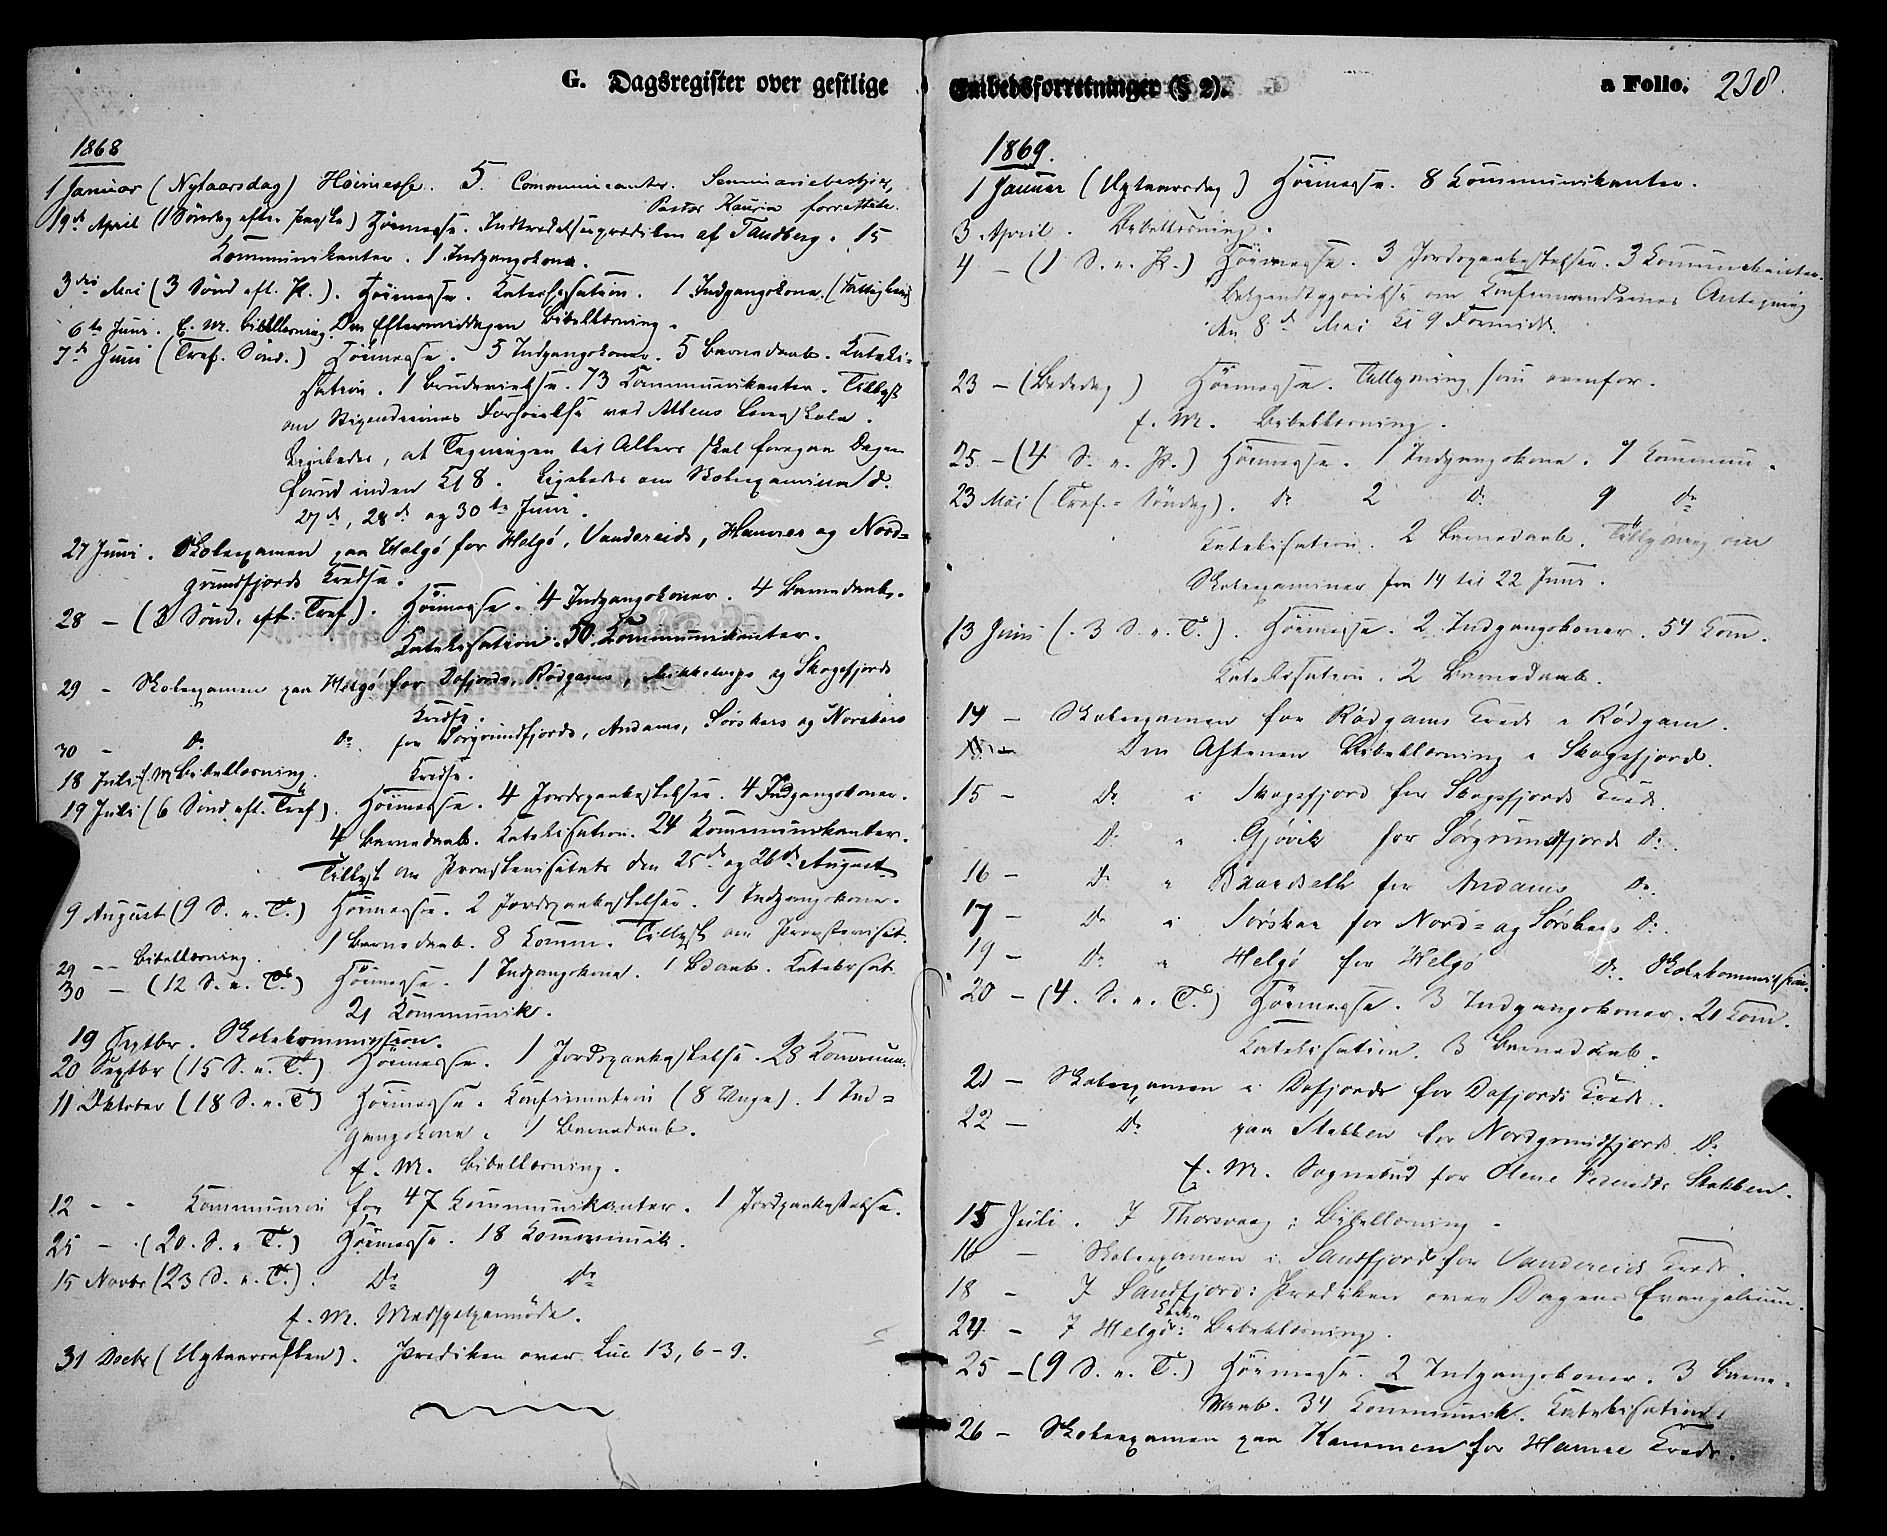 G. Dagsregister over gestlige
1868
1 Januar (Nytaarsdag) Høimesse. 5. Communicanter. Seminariebestyrer,
Pastor Kaurin forrettede.
19de April (1 Søndag efter Paaske) Høimesse. Indtrædelsesprædiken af Tandberg. 15
Kommunikanter. 1 Indgangskone.
3die Mai (3 Sønd. eft. P.). Høimesse. Katekisation. 1 Indgangskone.
6te Juni. E. M. Bibellæsning. Om Eftermiddagen Bibellæsning.
7de Juni (Tref. Sønd.) Høimesse. 5 Indgangskoner. 5 Barnedaab. Kateki-
sation. 1 Brudevielse. 73 Kommunikanter. Tillyst
om Stipendiernes
Ligeledes, at Tegningen til Alters skal foregaa Dagen
forud inden Kl 8. Ligeledes om Skoleexamina d.
27de, 28de og 30te Juni.
27 Juni. Skoleexamen paa Helgø for Helgø, Vandereids, Hamres og Nord-
grundfjords Kredse.
28 — (3 Sønd. eft. Tref.). Høimesse. 4 Indgangskoner. 4 Barnedaab.
Katekisation. 50 Kommunikanter.
29 - Skoleexamen paa Helgø for Dafjords, Rødgams, Mikkelvigs og Skogsfjords
Kredse.
30 - Do Do for Sørgrundfjords, Andams, Sørskars og Norskars
Kredse.
18 Juli E. M. Bibellæsning.
19 Juli (6 Sønd. eft. Tref.). Høimesse. 4 Jordspaakastelser. 4 Indgangskoner.
4 Barnedaab. Katekisation. 24 Kommunikanter.
Tillyst om Provstevisitats den 25de og 26de August
9 August (9 S. e. T.) Høimesse. 2 Jordspaakastelser. 1 Indgangskone.
1 Barnedaab. 8 Komm. Tillyst om Provstevisit.
29 — Bibellæsning.
30 — (12 S. e. T.) Høimesse. 1 Indgangskone. 1 Bdaab. Katekisat.
21 Kommunik.
19 Septbr. Skolekommission.
20 Septbr (15 S. e. T.) Høimesse. 1 Jordspaakastelse. 28 Kommun.
11 Oktober (18 S. e. T.) Høimesse. Konfirmation (8 Unge). 1 Ind-
gangskone. 1 Barnedaab.
E. M. Bibellæsning.
12 - - Kommunion for 47 Kommunikanter. 1 Jordpaakastelse.
25 - (20. S. e. T.) Høimesse. 18 Kommunik.
15 Novbr (23 S. e. T.). Do 9 Do
E. M. Mægling
31 Decbr (Nytaarsaften). Prædiken over Luc 13, 6-9.
Embedsforretninger (§ 2).
a Folio. 238.
1869.
1 Januar (Nytaarsdag) Høimesse. 8 Kommunikanter.
3 April. Bibellæsning.
4 — (1 S. e. P.) Høimesse. 3 Jordspaakastelser. 3 Kommunikanter.
Bekjendtgjørelse om Konfirmandernes Antegning
den 8de Mai Kl 9 Formidd.
23 — (Bededag) Høimesse. Tillysning som ovenfor.
E. M. Bibellæsning.
25 — (4 S. e. P.) Høimesse. 1 Indgangskone. 9 Kommun.
23 Mai (Tref.-Søndag). Do 2 Do 9 Do
Katekisation. 2 Barnedaab. Tillysning om
Skoleexaminer fra 14 til 22 Juni.
13 Juni (3 S. e. T.). Høimesse. 2 Indgangskoner. 54 Kom.
Katekisation. 2 Barnedaab.
14 — Skoleexamen for Rødgams Kreds i Rødgam.
Om Aftenen Bibellæsning i Skogsfjord.
15 — Do i Skogsfjord for Skogsfjords Kreds.
Do i Gjøvik for Sørgrundfjords Do.
16 — Do i for Andams Do.
17 — Do i Sørskar for Nord- og Sørskars Do.
19 — Do i Helgø for Helgø Do. Skolekommission.
20 — (4. S. e. T.) Høimesse. 3 Indgangskoner. 21 Kom.
Katekisation. 3 Barnedaab.
21 — Skoleexamen i Dafjord for Dafjords Kreds.
22 — Do paa Stakken for Nordgrundfjords Do.
E. M. Sognebud for Olene Pedersdtr Stakken.
15 Juli. I Thorsvaag: Bibellæsning.
16 — Skoleexamen i Sandfjord for Vandereids Kreds.
18 — I Sandfjord: Prædiken over Dagens Evangelium.
24 — I Helgø Kirke: Bibellæsning.
25 — (9 S. e. T.) Høimesse. 2 Indgangskoner. 3 Barne-
daab. 34 Kommunik. Katekisation.
26 — Skoleexamen paa Kammen for Hamre Kreds.